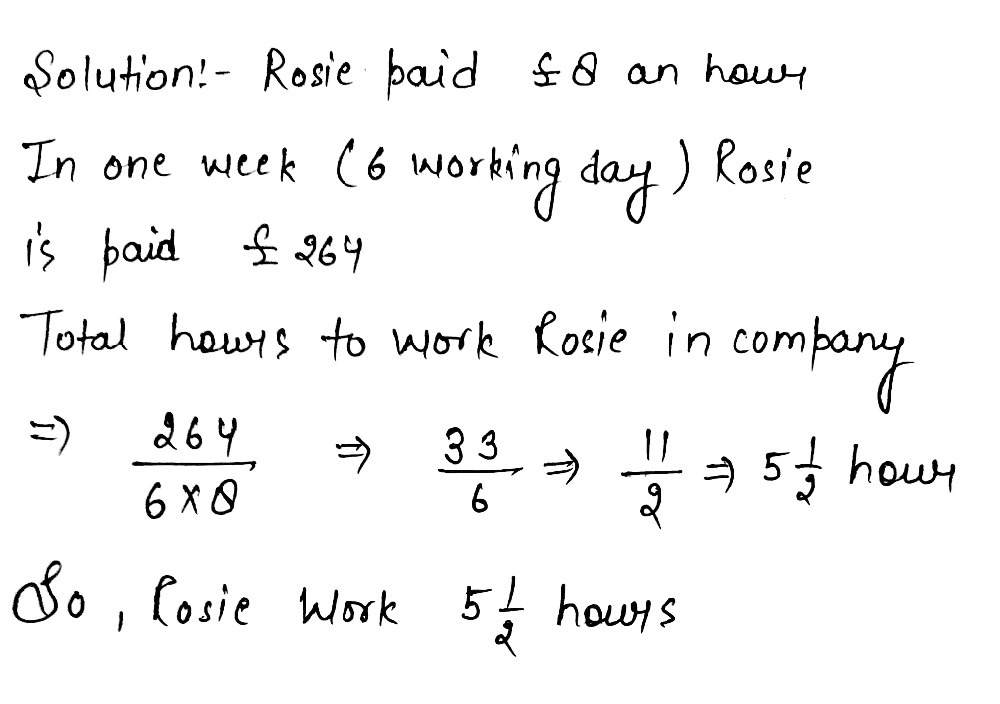 Solution:- Rosie paid £8 an hour
In one week (6 working day) Rosie
is paid £264
Total hours to work Rosie in company
⇒ 264/(6×8) ⇒ 33/6 ⇒ 11/2 ⇒ 5 1/2 hour
So, Rosie Work 5 1/2 hours